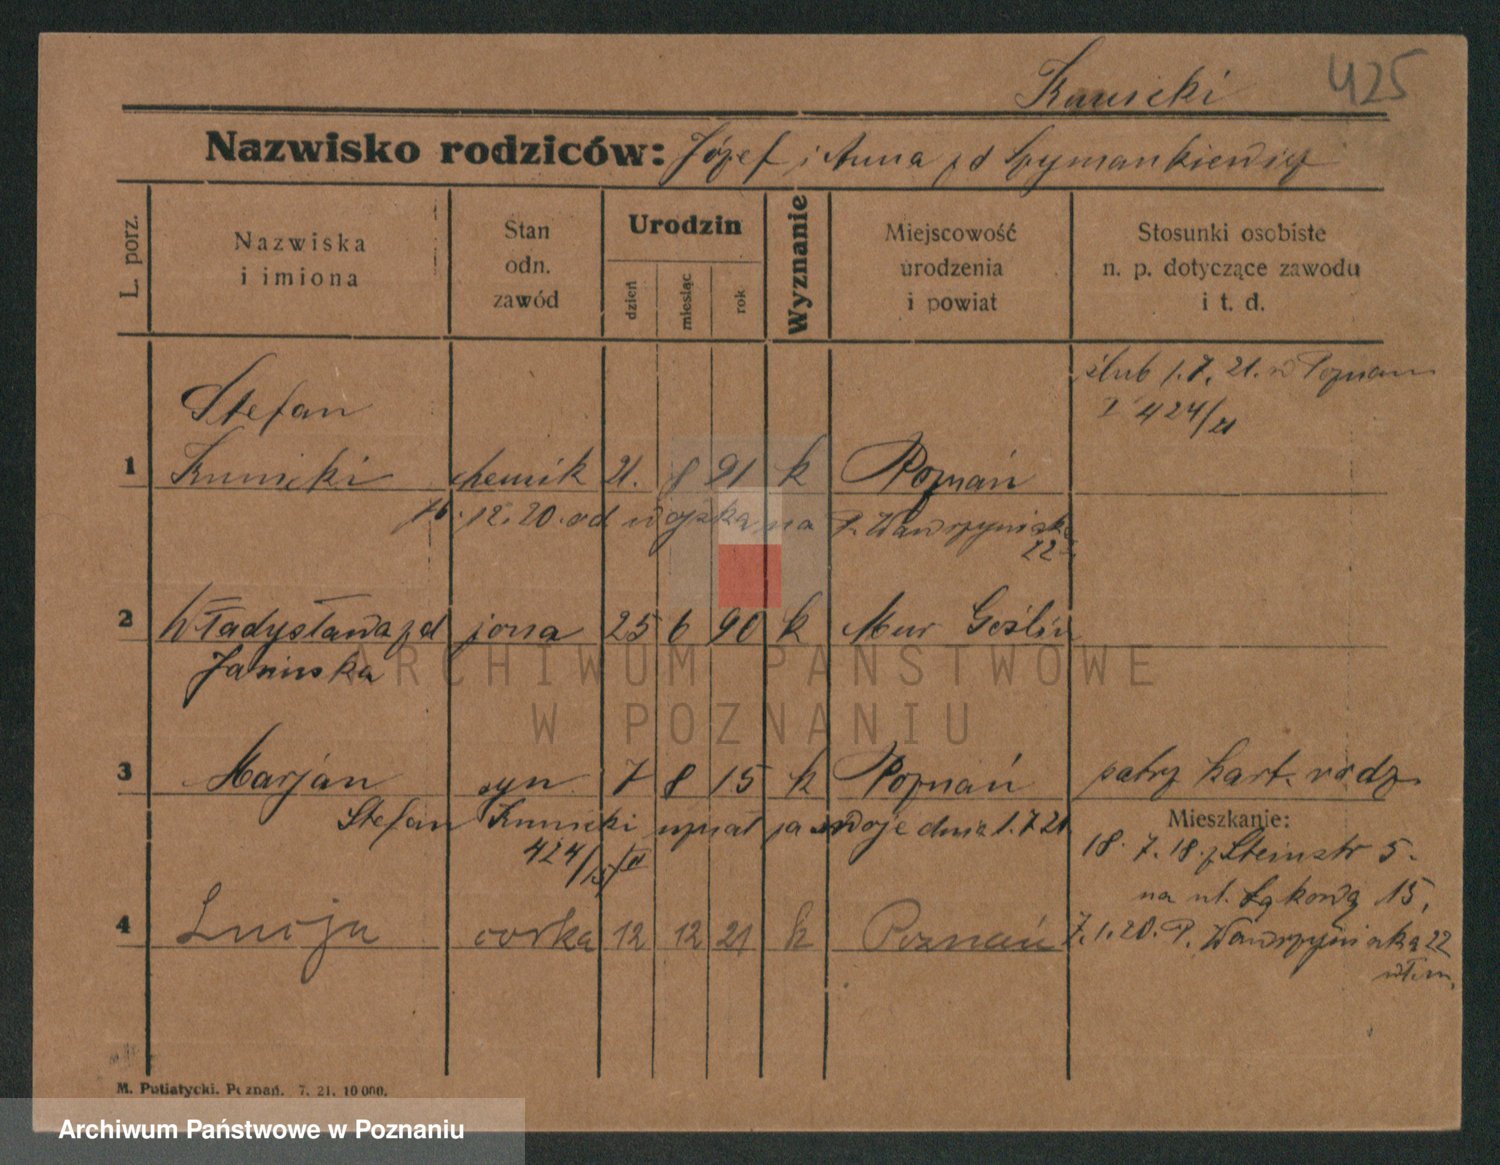 Kunicki 425
Nazwisko rodziców: Józef i Anna zd Szymankiewicz
L. porz.
Nazwiska i imiona
Stan odn. zawód
Urodzin
dzień
miesiąc
rok
Wyznanie
Miejscowość urodzenia i powiat
Stosunki osobiste n. p. dotyczące zawodu i t. d.
ślub 1.7.21. w Poznaniu
424/21
Stefan
1 Kunicki chemik 21. 8 91 k Poznań
12.20. od wojska na P. Wawrzyniaka 22
2 Władysława zd żona 25 6 90 k Mur Goślin
Jasinska
ARCHIWUM PAŃSTWOWE
W POZNANIU
3 Marjan syn 7 8 15 k Poznań patrz kart. rodz.
Stefan Kunicki uznał za swoje dnia 1.7.21
424/
Mieszkanie:
18.7.18. z Steinstr 5.
na ul. Łąkową 15,
4 Lucja corka 12 12 21 k Poznań 7.1.20. P. Wawrzyniaka 22
M. Putiatycki. Poznań. 7. 21. 10 000.
Archiwum Państwowe w Poznaniu